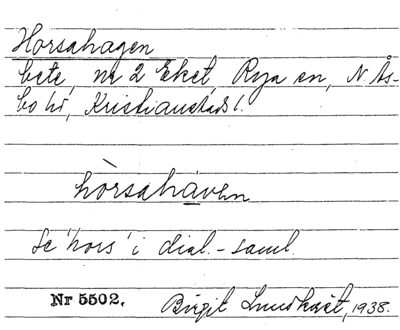 Horsahagen
bete, nr 2 Eket, Rya sn, N Ås-
bo hd, Kristianstads l.
hòrsahàven
Se 'hors' i dial.-saml.
Nr 5502. Birgit Lundkvist, 1938.